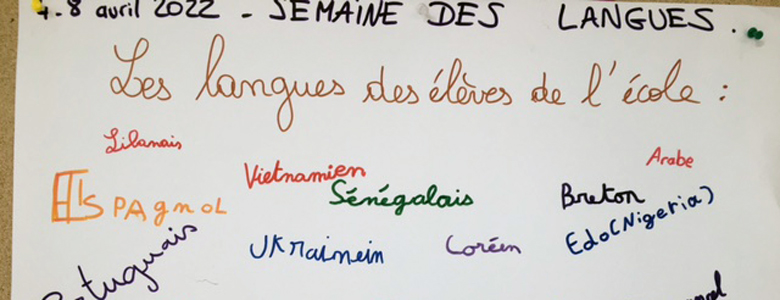 4-8 avril 2022 - SEMAINE DES LANGUES.
Les langues des élèves de l'école :
Libanais
Arabe
Vietnamien
ESPAgnoL
Sénégalais
Breton
Edo (Nigeria)
UKRainein
Coréen